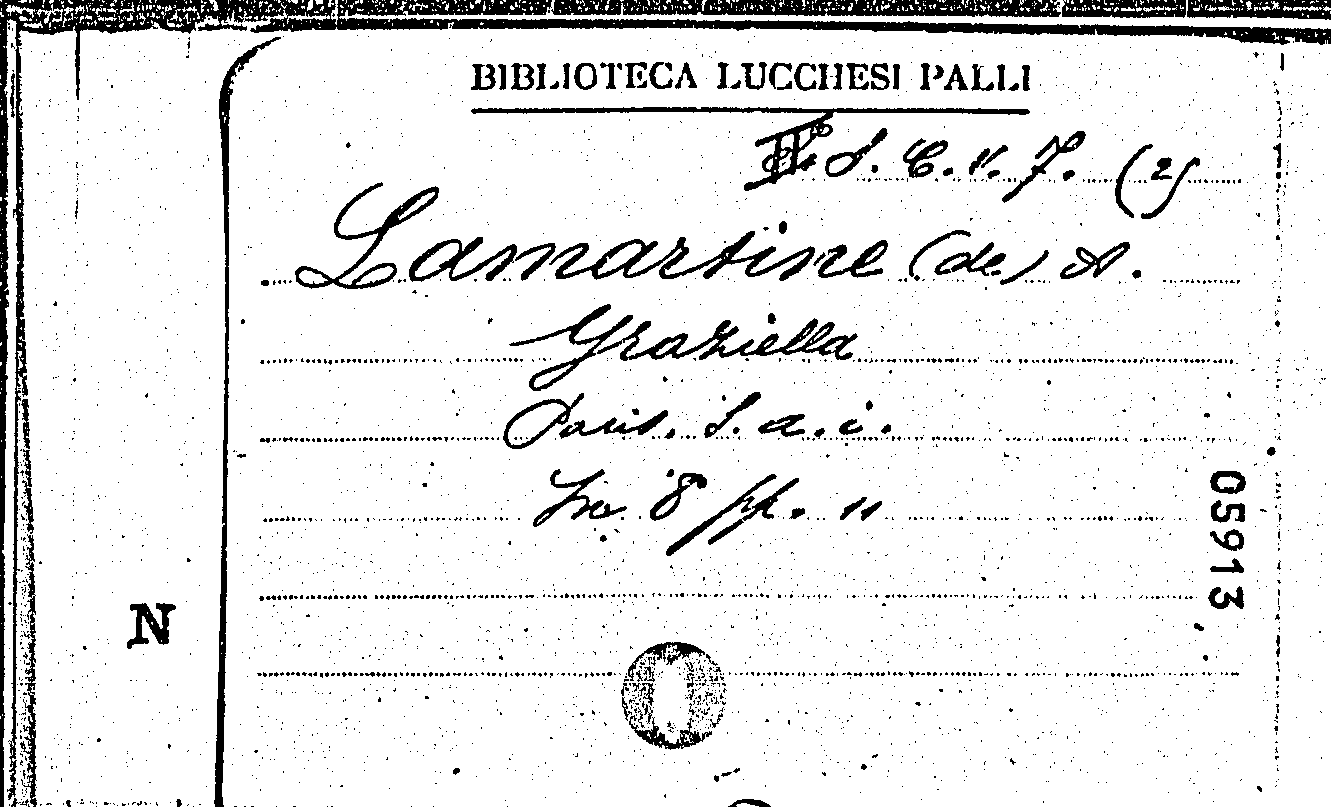 BIBLIOTECA LUCCHESI PALLI
S. C. V. 7. (2)
Lamartine (de) A.
Graziella
Paris. S. a. i.
In 8 pp. 11
05913
N